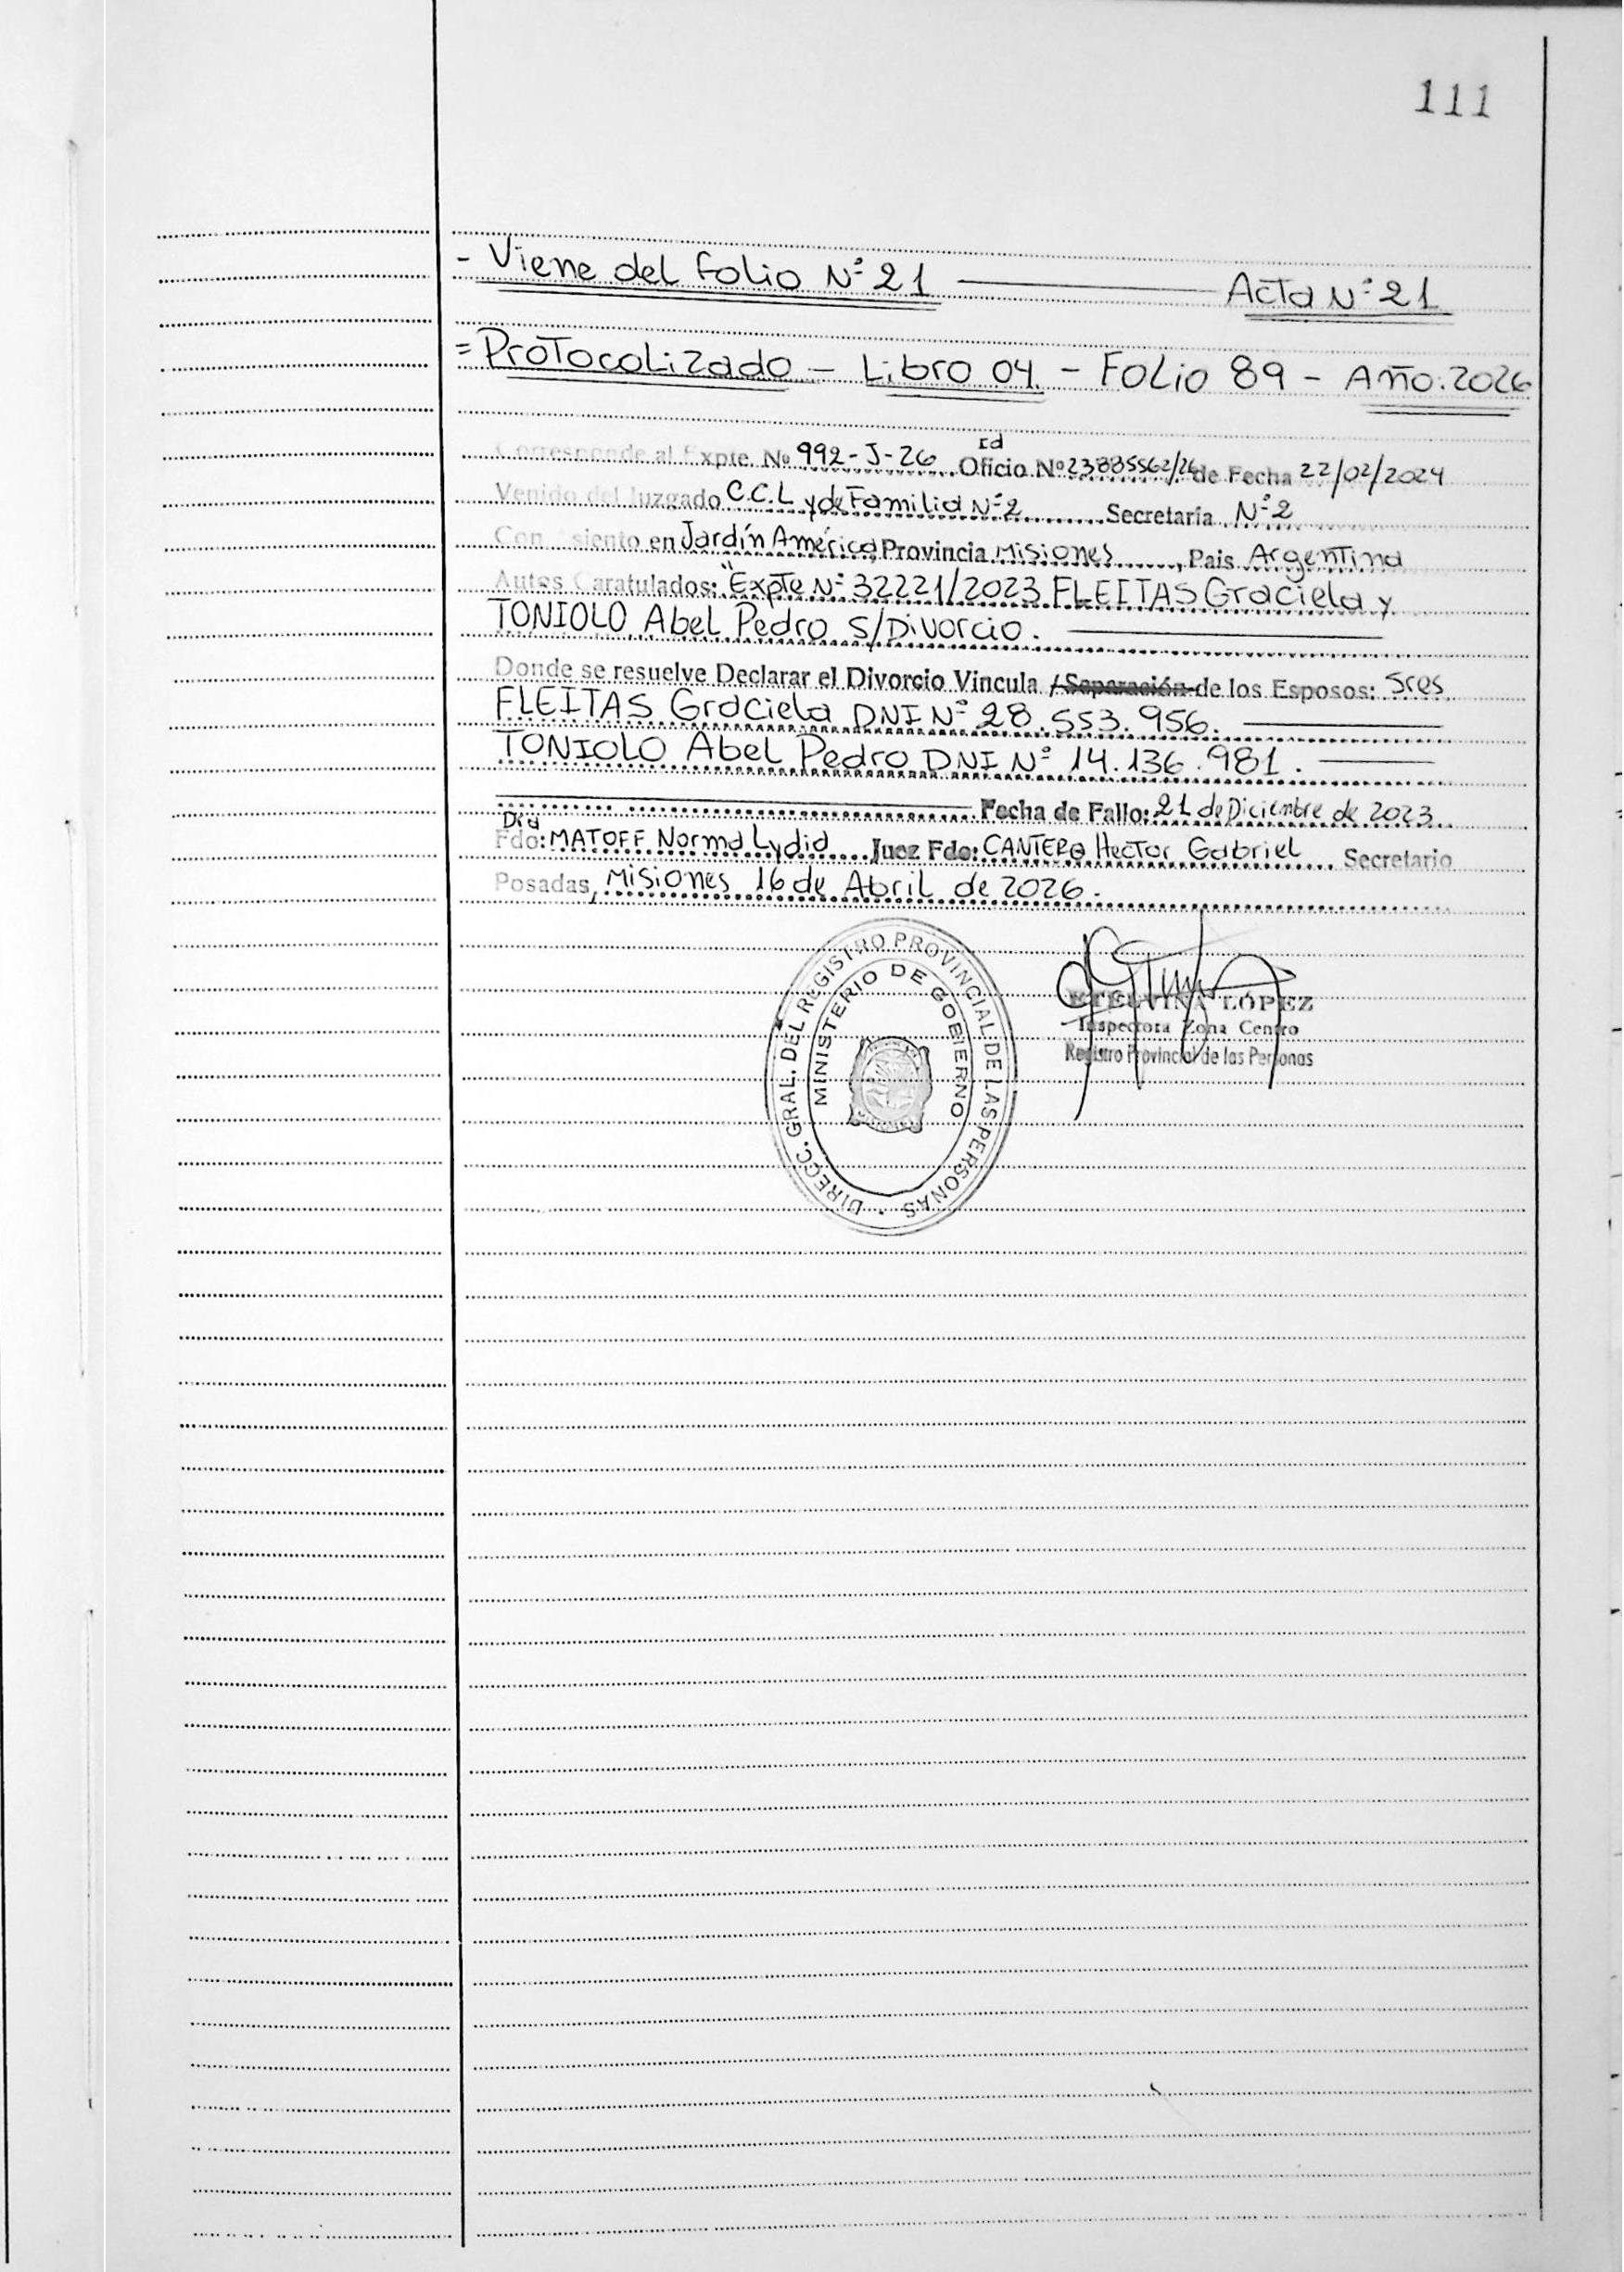 111
- Viene del Folio N° 21 ——— Acta N° 21
= Protocolizado - Libro 04 - Folio 89 - Año: 2026
Corresponde al Expte. Nº 992-J-26 rd Oficio Nº 23885562/26 de Fecha 22/02/2024
Venido del Juzgado C.C.L y de Familia N°2 Secretaría N°2
Con Asiento en Jardín América, Provincia Misiones, Pais Argentina
Autos Caratulados: "Expte N° 32221/2023 FLEITAS Graciela y
TONIOLO Abel Pedro S/Divorcio.
Donde se resuelve Declarar el Divorcio Vincula /Separación de los Esposos: Sres
FLEITAS Graciela DNI N° 28.553.956.
TONIOLO Abel Pedro DNI N° 14.136.981.
Fecha de Fallo: 21 de Diciembre de 2023
Dra
Fdo: MATOFF Norma Lydia Juez Fdo: CANTERO Hector Gabriel Secretario
Posadas, Misiones 16 de Abril de 2026.
DIRECC. GRAL. DEL REGISTRO PROVINCIAL DE LAS PERSONAS
MINISTERIO DE GOBIERNO
ETELVINA LÓPEZ
Inspectora Zona Centro
Registro Provincial de las Personas